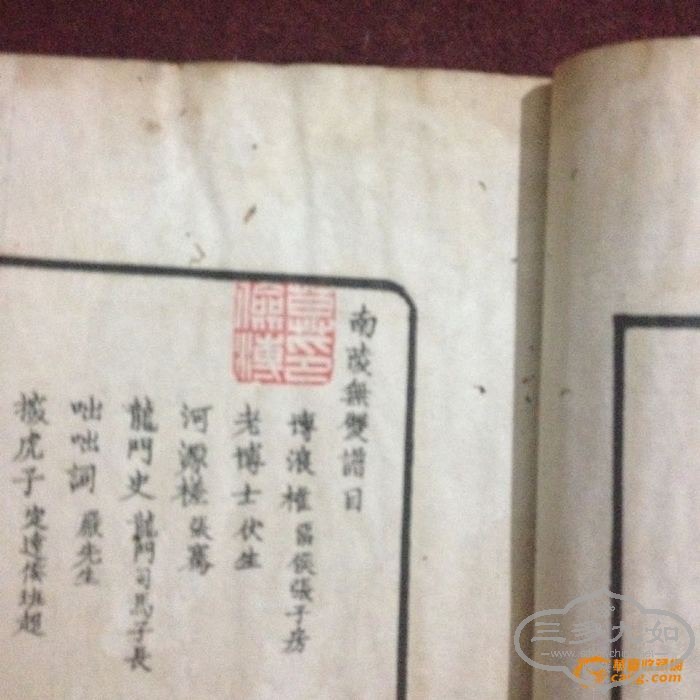 南陵無雙譜目
博浪椎 留侯張子房
老博士 伏生
河源槎 張騫
龍門史 龍門司馬子長
咄咄詞 嚴先生
探虎子 定遠侯班超
三多九如
華夏收藏網
cang.com